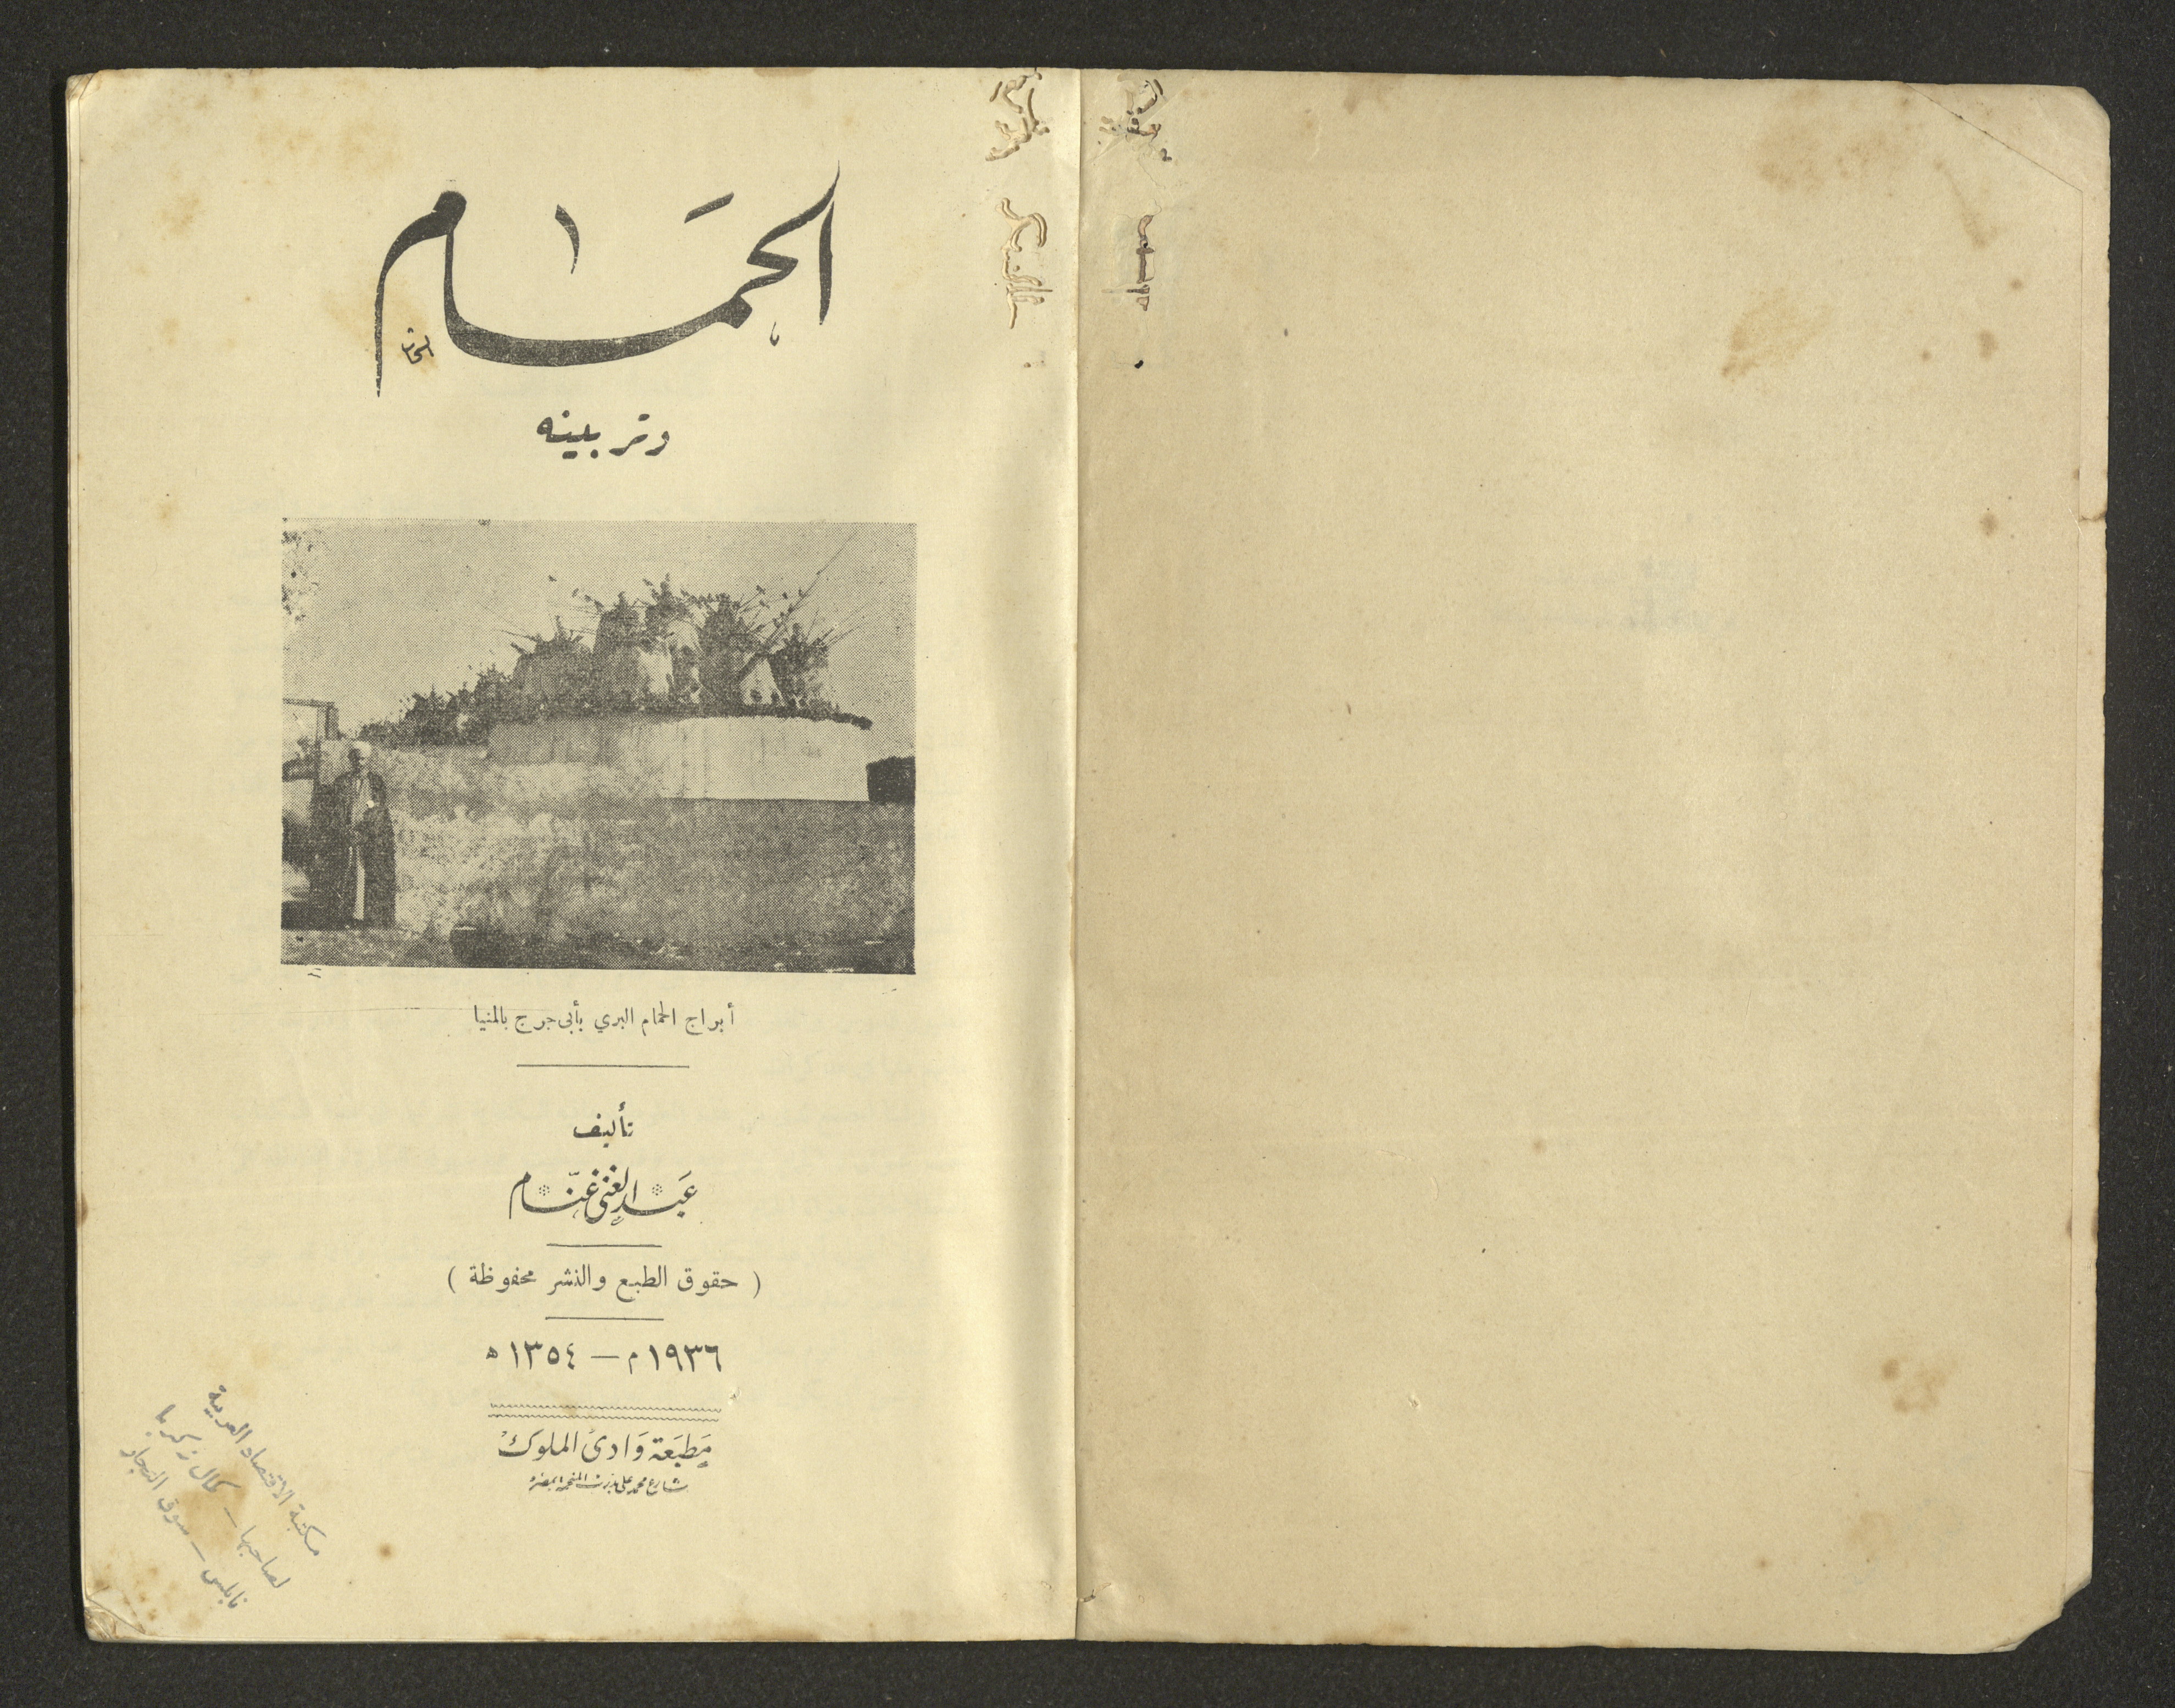 الحمَام
وتربيته
أبراج الحمام البري بأبى جرج بالمنيا
تأليف
عَبد الغنى غنّام
( حقوق الطبع والنشر محفوظة )
١٩٣٦ م — ١٣٥٤ ه
مَطبَعة وَادى الملوك
شارع محمد على بدرب المنجمه بمصر
مكتبة الاقتصاد العربية
لصاحبها - كمال زكريا
نابلس - سوق التجار